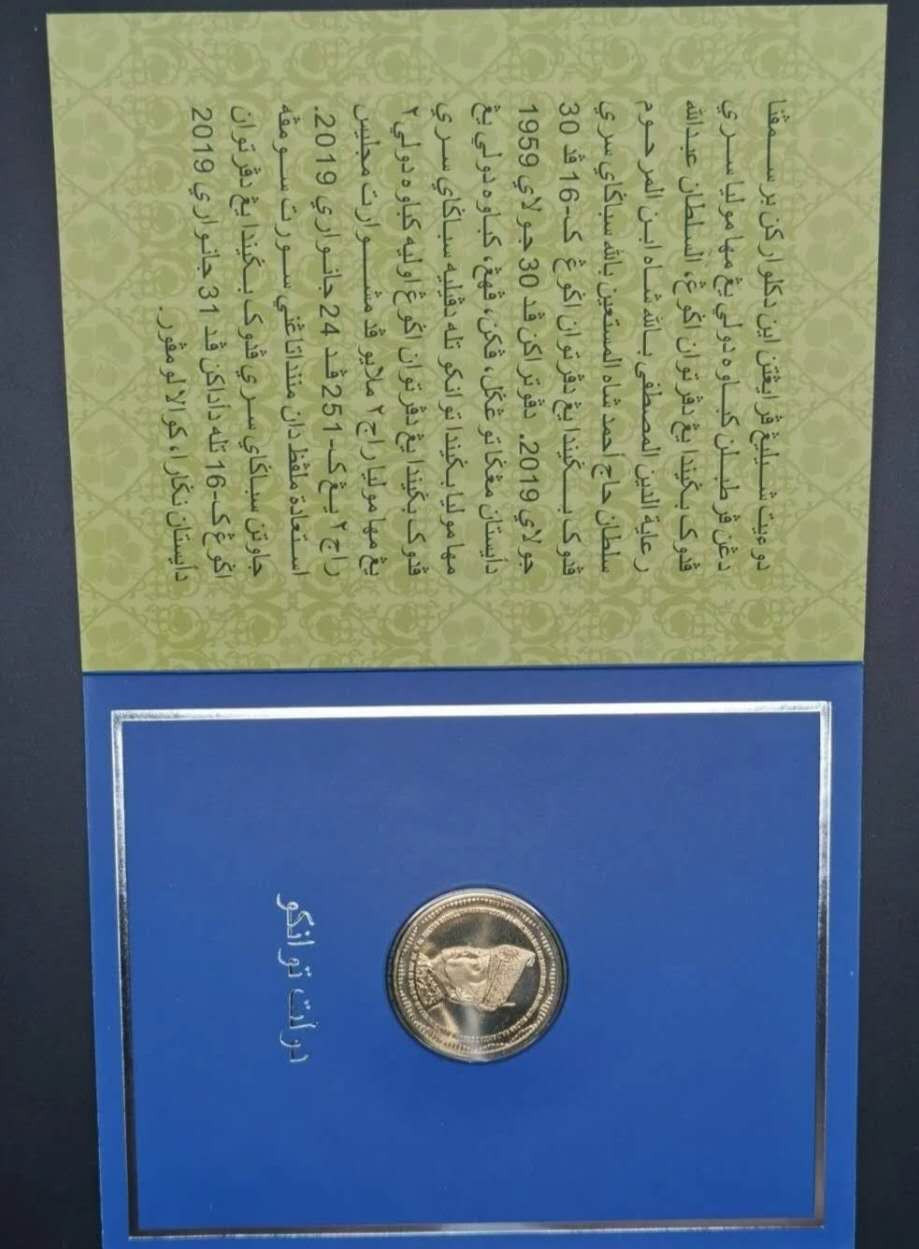 دوءيت شيليڠ ڤرايڠتن اين دكلواركن برسمڤنا
دڠن ڤرطبلن كباوه دولي يڠ مها موليا سري
ڤدوک بݢيندا يڠ دڤرتوان اݢوڠ، السلطان عبدالله
رعاية الدين المصطفى بالله شاه ابن المرحوم
سلطان حاج أحمد شاه المستعين بالله سباݢاي سري
ڤدوک بݢيندا يڠ دڤرتوان اݢوڠ ک-16 ڤد 30
جولاي 2019. دڤوتراكن ڤد 30 جولاي 1959
دأيستان مڠݢا توڠݢل، ڤكن، ڤهڠ، كباوه دولي يڠ
مها موليا بݢيندا توانكو تله دڤيليه سباݢاي سري
ڤدوک بݢيندا يڠ دڤرتوان اݢوڠ اوليه كباوه دولي٢
يڠ مها موليا راج٢ ملايو ڤد مشوارت مجليس
راج٢ يڠ ک-251 ڤد 24 جانواري 2019.
استعادة ملفظ دان منندا تاڠني سورت سومڤه
جاوتن سباݢاي سري ڤدوک بݢيندا يڠ دڤرتوان
اݢوڠ ک-16 تله دأداكن ڤد 31 جانواري 2019
دأيستان نݢارا، كوالا لومڤور.
دولت توانكو